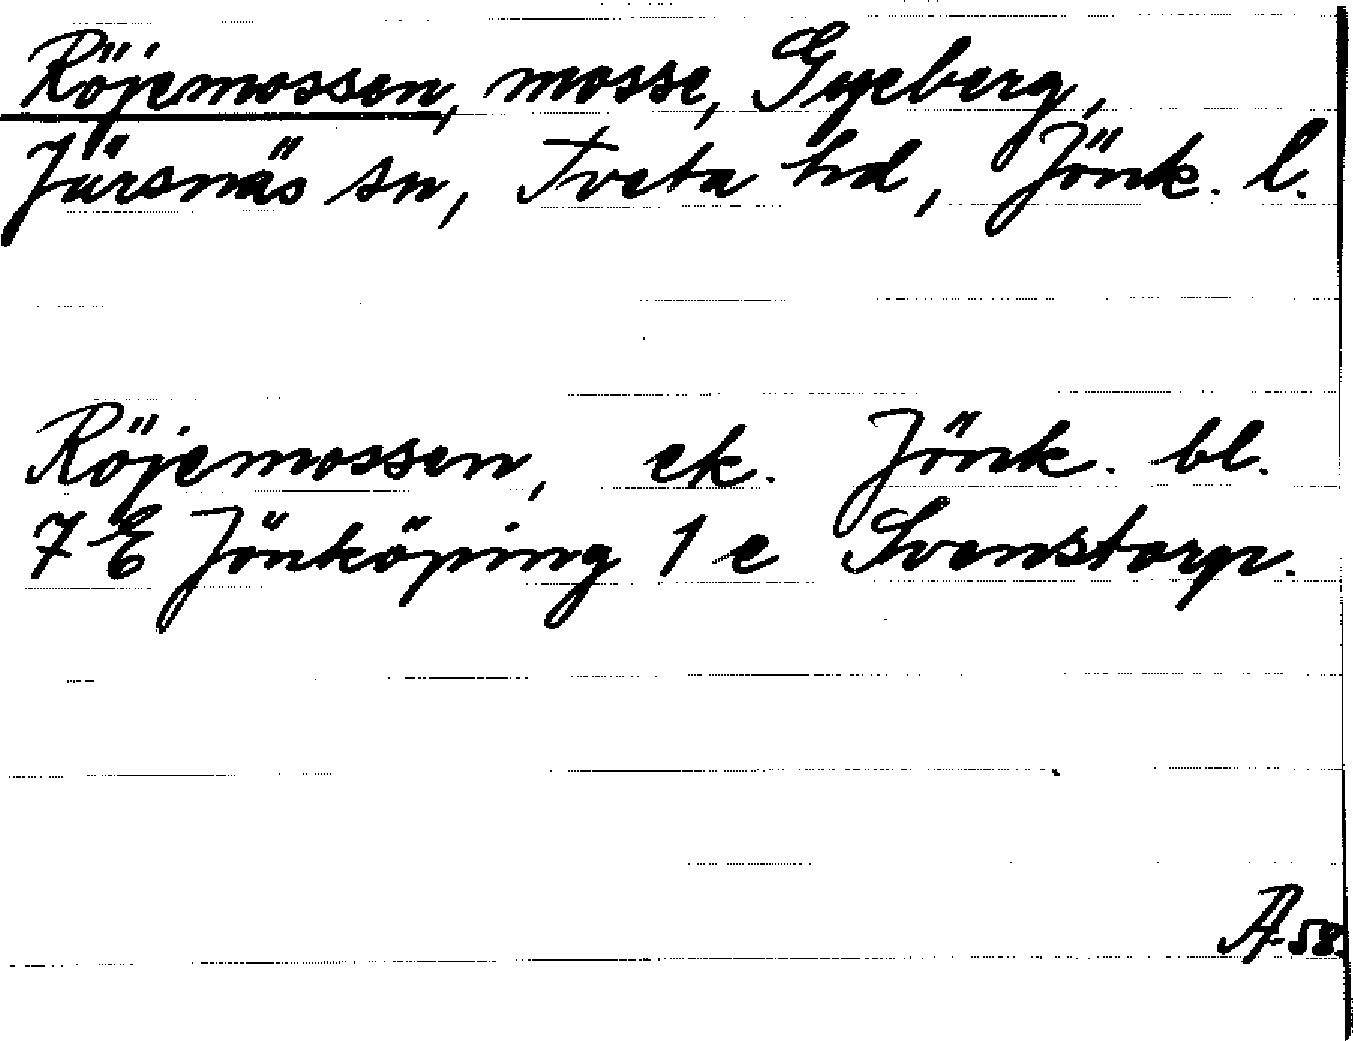 Röjemossen, mosse, Gyeberg,
Järsnäs sn, Tveta hd, Jönk. l.
Röjemossen, ek. Jönk. bl.
7 E Jönköping 1 e Svenstorp.
A 58.